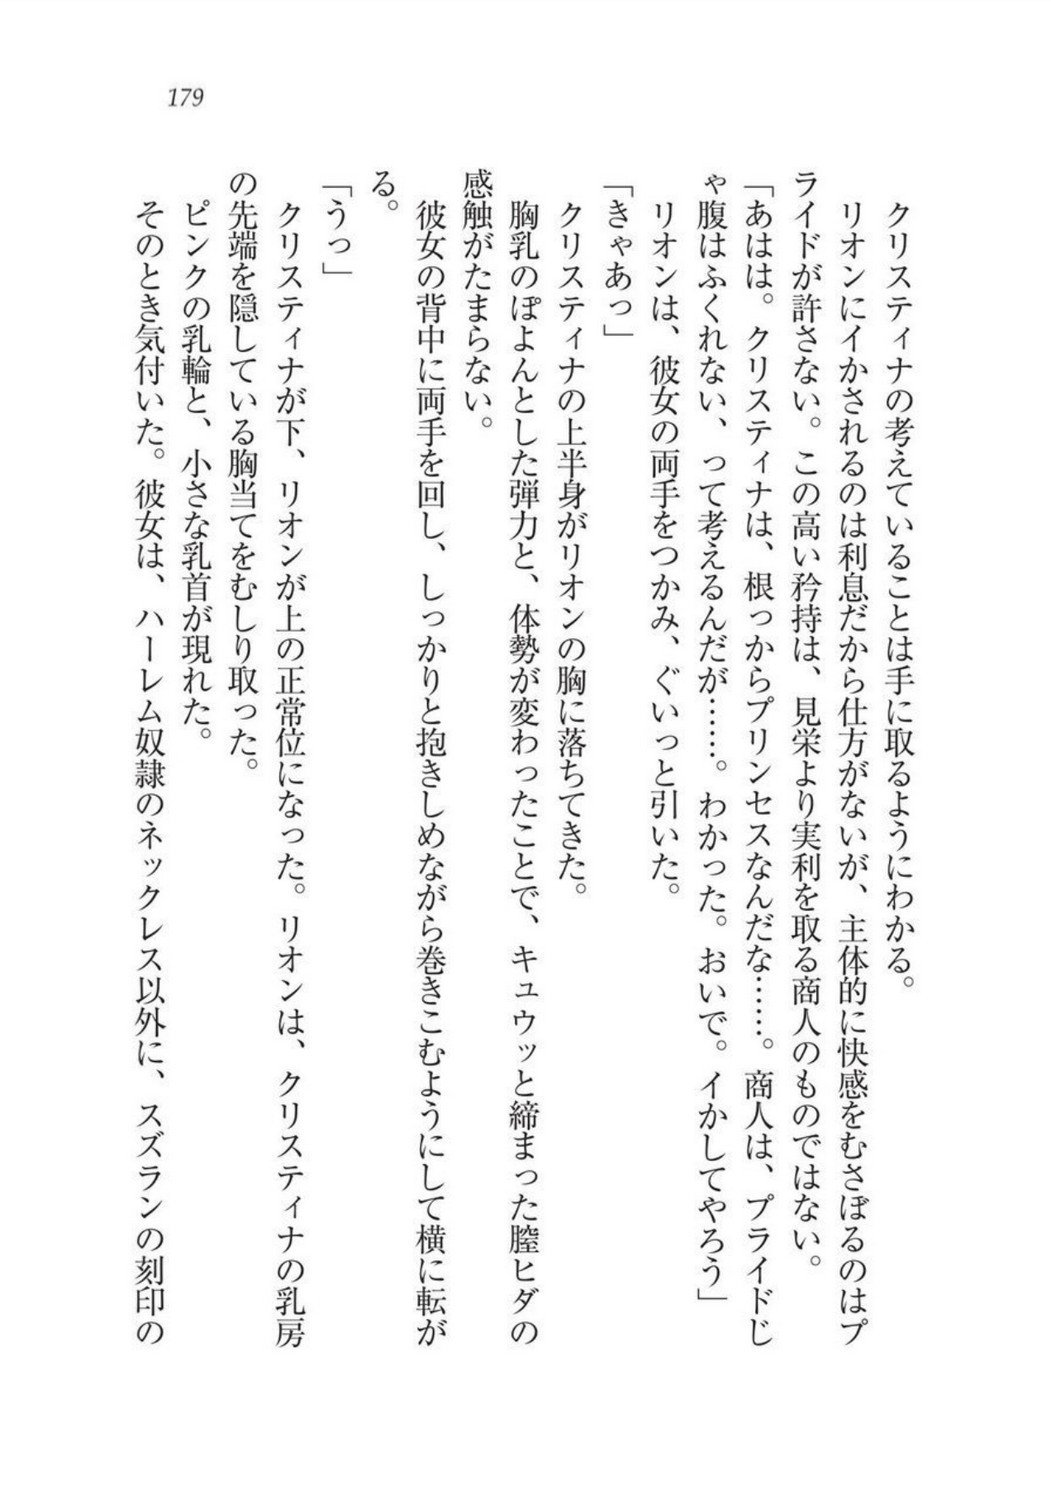 179
クリスティナの考えていることは手に取るようにわかる。
リオンにイかされるのは利息だから仕方がないが、主体的に快感をむさぼるのはプ
ライドが許さない。この高い矜持は、見栄より実利を取る商人のものではない。
「あはは。クリスティナは、根っからプリンセスなんだな……。商人は、プライドじ
ゃ腹はふくれない、って考えるんだが……。わかった。おいで。イかしてやろう」
リオンは、彼女の両手をつかみ、ぐいっと引いた。
「きゃあっ」
クリスティナの上半身がリオンの胸に落ちてきた。
胸乳のぽよんとした弾力と、体勢が変わったことで、キュウッと締まった膣ヒダの
感触がたまらない。
彼女の背中に両手を回し、しっかりと抱きしめながら巻きこむようにして横に転が
る。
「うっ」
クリスティナが下、リオンが上の正常位になった。リオンは、クリスティナの乳房
の先端を隠している胸当てをむしり取った。
ピンクの乳輪と、小さな乳首が現れた。
そのとき気付いた。彼女は、ハーレム奴隷のネックレス以外に、スズランの刻印の